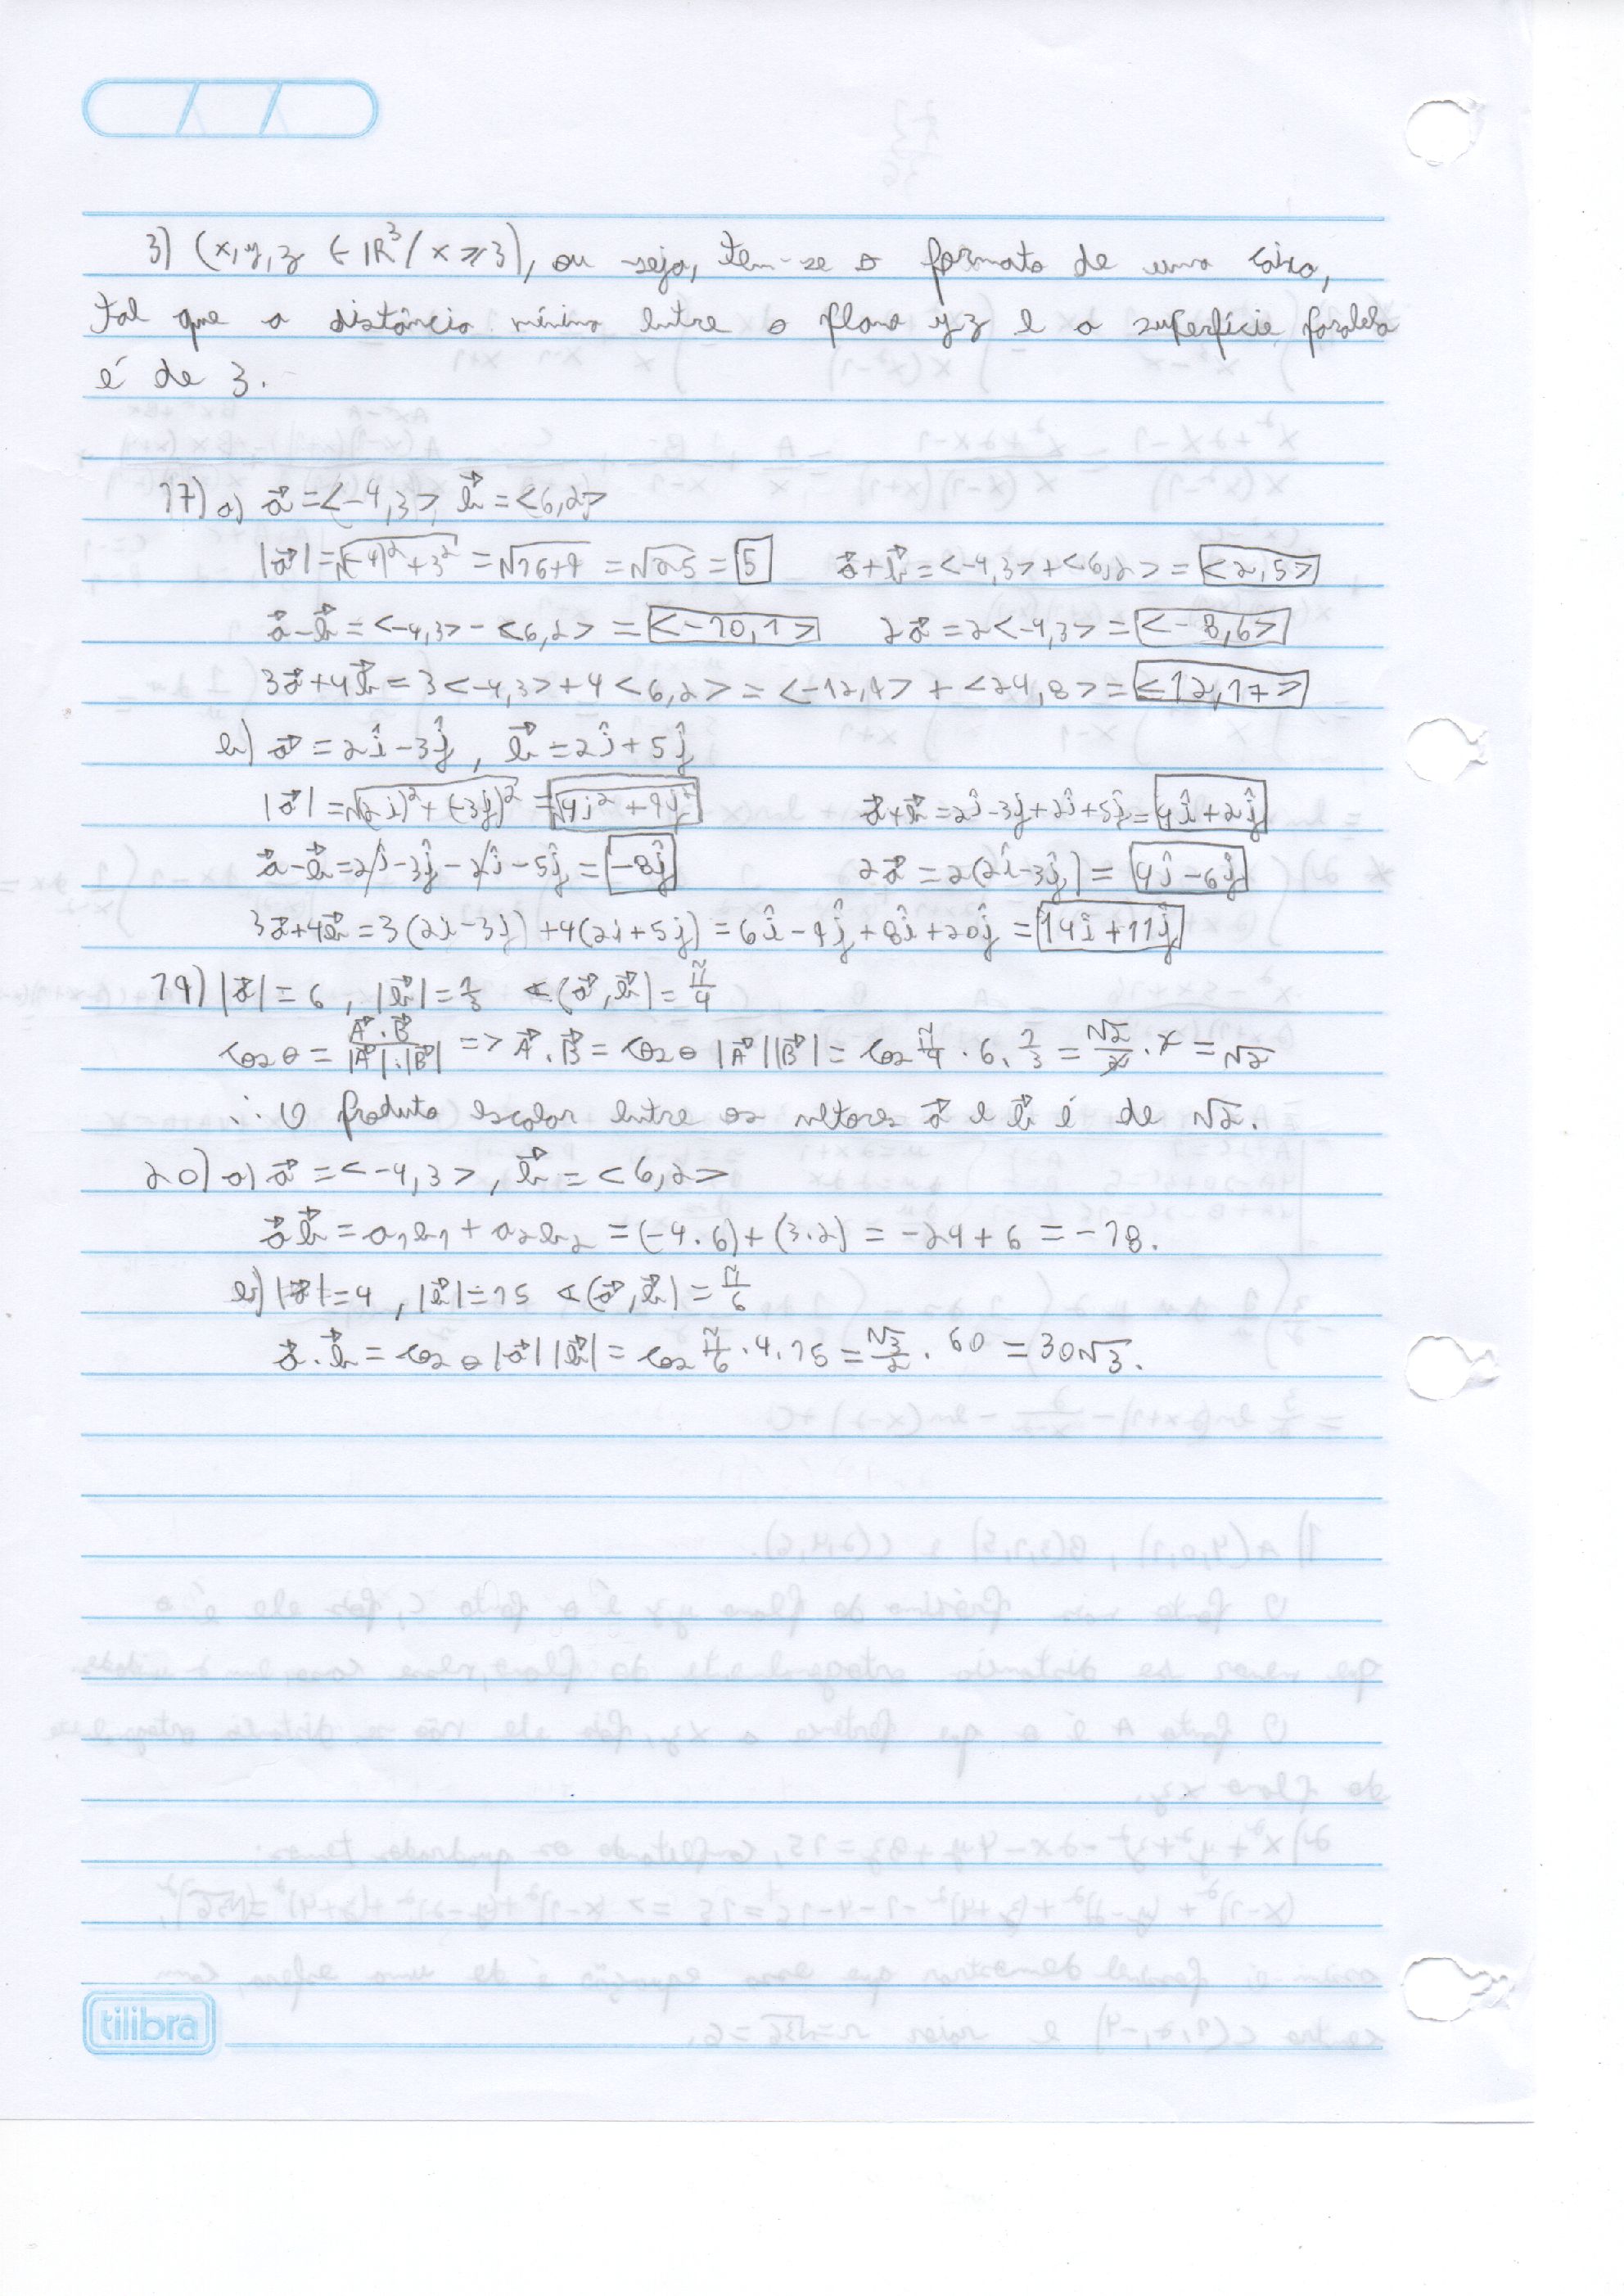 3) (x,y,z ∈ ℝ³ / x ⩾ 3), ou seja, tem-se o formato de uma caixa,
tal que a distância mínima entre o plano yz e a superfície paralela
é de 3.
17) a) a⃗ = <-4,3>, b⃗ = <6,2>
|a⃗| = √((-4)² + 3²) = √(16+9) = √25 = 5   a⃗+b⃗ = <-4,3> + <6,2> = <2,5>
a⃗-b⃗ = <-4,3> - <6,2> = <-10,1>   2a⃗ = 2<-4,3> = <-8,6>
3a⃗+4b⃗ = 3<-4,3> + 4<6,2> = <-12,9> + <24,8> = <12,17>
b) a⃗ = 2î - 3ĵ, b⃗ = 2î + 5ĵ
|a⃗| = √((2i)² + (-3j)²) = √(4i² + 9j²)   a⃗+b⃗ = 2î - 3j + 2î + 5ĵ = 4î + 2ĵ
a⃗-b⃗ = 2î - 3ĵ - 2î - 5ĵ = -8ĵ   2a⃗ = 2(2î - 3ĵ) = 4î - 6ĵ
3a⃗+4b⃗ = 3(2i - 3j) + 4(2i + 5j) = 6î - 9ĵ + 8î + 20ĵ = 14î + 11ĵ
19) |a⃗| = 6, |b⃗| = 1/3 ∢(a⃗,b⃗) = π/4
cos θ = A⃗.B⃗/|A⃗|.|B⃗| => A⃗.B⃗ = cos θ |A⃗||B⃗| = cos π/4 . 6 . 1/3 = √2/2 . 2 = √2
∴ O produto escalar entre os vetores a⃗ e b⃗ é de √2.
20) a) a⃗ = <-4,3>, b⃗ = <6,2>
a⃗ b⃗ = a₁b₁ + a₂b₂ = (-4.6) + (3.2) = -24 + 6 = -18.
b) |a⃗| = 4, |b⃗| = 15 ∢(a⃗,b⃗) = π/6
a⃗.b⃗ = cos θ |a⃗||b⃗| = cos π/6 . 4.15 = √3/2 . 60 = 30√3.
tilibra